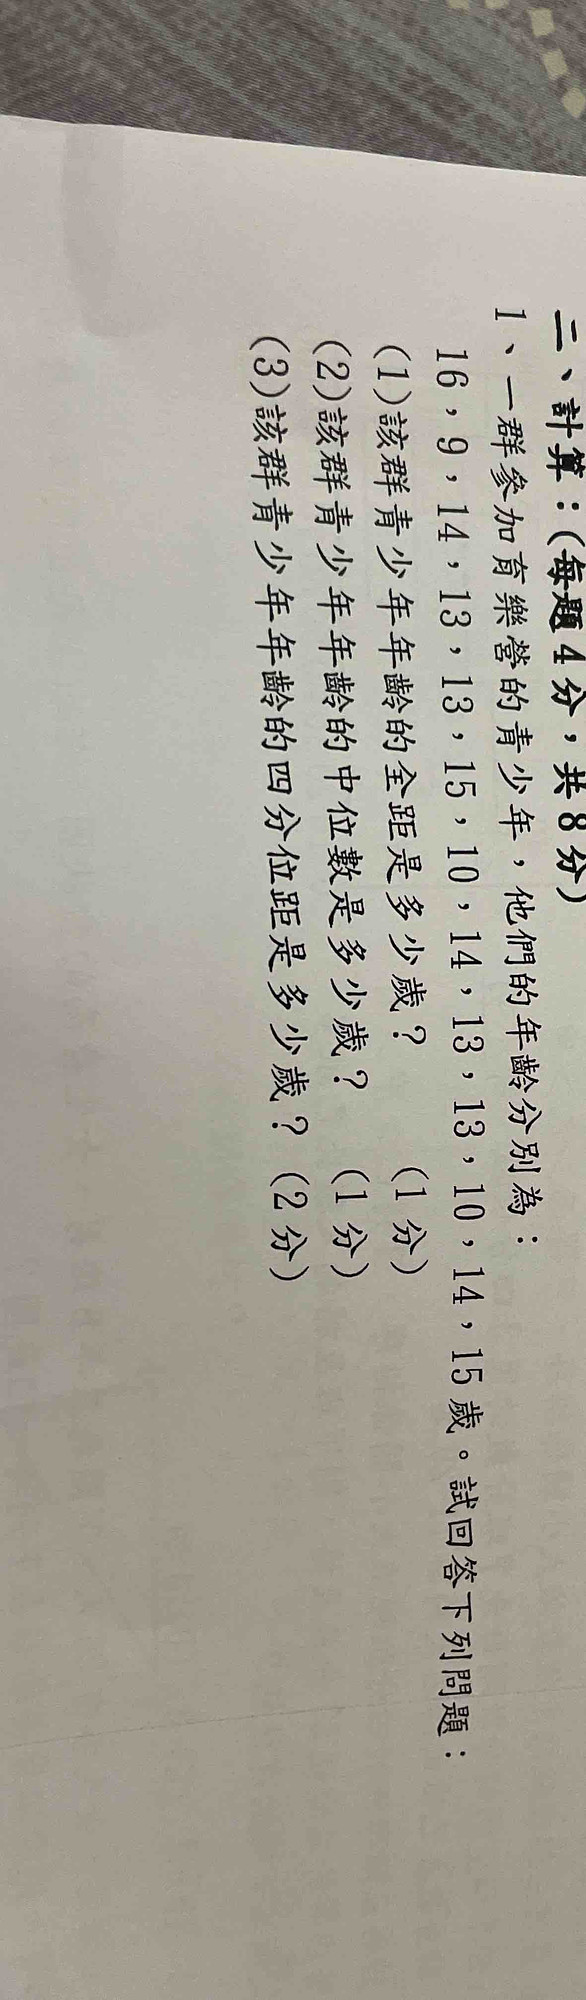 二、計算：(每題4分，共8分)
1、一群參加育樂營的青少年，他們的年齡分別為：
16，9，14，13，13，15，10，14，13，13，10，14，15歲。試回答下列問題：
(1)該群青少年年齡的全距是多少歲？ (1分)
(2)該群青少年年齡的中位數是多少歲？ (1分)
(3)該群青少年年齡的四分位距是多少歲？(2分)